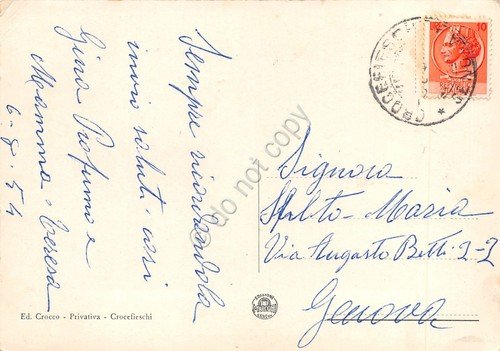 Sempre ricordandola
invio saluti cari
Gina Profumo e
Mamma Teresa
6-8-54
Ed. Crocco - Privativa - Crocefieschi
10
CROCEFIESCHI
GENOVA
Signora
Maria
Via Augusto Betti 2-2
Genova
do not copy